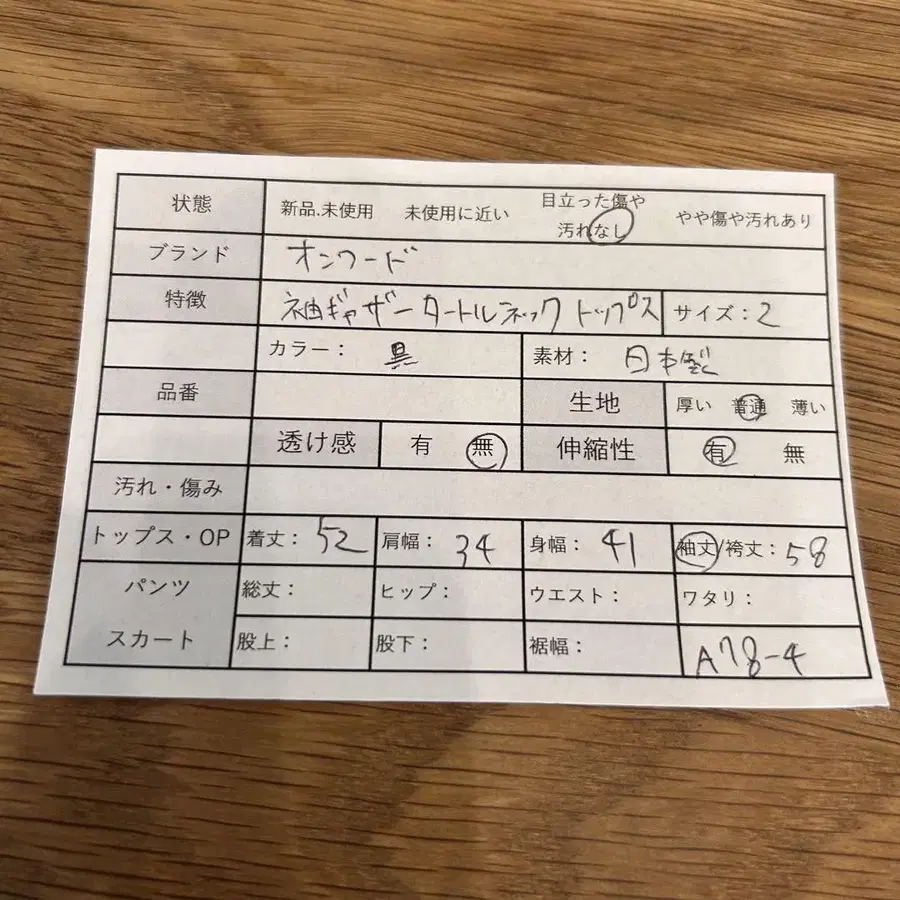 状態 新品.未使用 未使用に近い 目立った傷や汚れなし やや傷や汚れあり
ブランド オンワード
特徴 袖ギャザータートルネックトップス サイズ：2
カラー： 黒 素材： 日本製
品番 生地 厚い 普通 薄い
透け感 有 無 伸縮性 有 無
汚れ・傷み
トップス・OP 着丈：52 肩幅：34 身幅：41 袖丈/袴丈：58
パンツ 総丈： ヒップ： ウエスト： ワタリ：
スカート 股上： 股下： 裾幅： A78-4